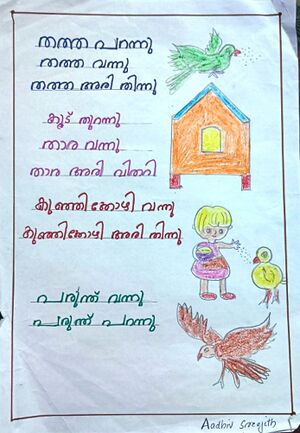 തത്ത പറന്നു
തത്ത വന്നു
തത്ത അരി തിന്നു
കൂട് തുറന്നു
താര വന്നു
താര അരി വിതറി
കുഞ്ഞിക്കോഴി വന്നു
കുഞ്ഞിക്കോഴി അരി തിന്നു
പരുന്ത് വന്നു
പരുന്ത് പറന്നു
Aadhiv Sreejith